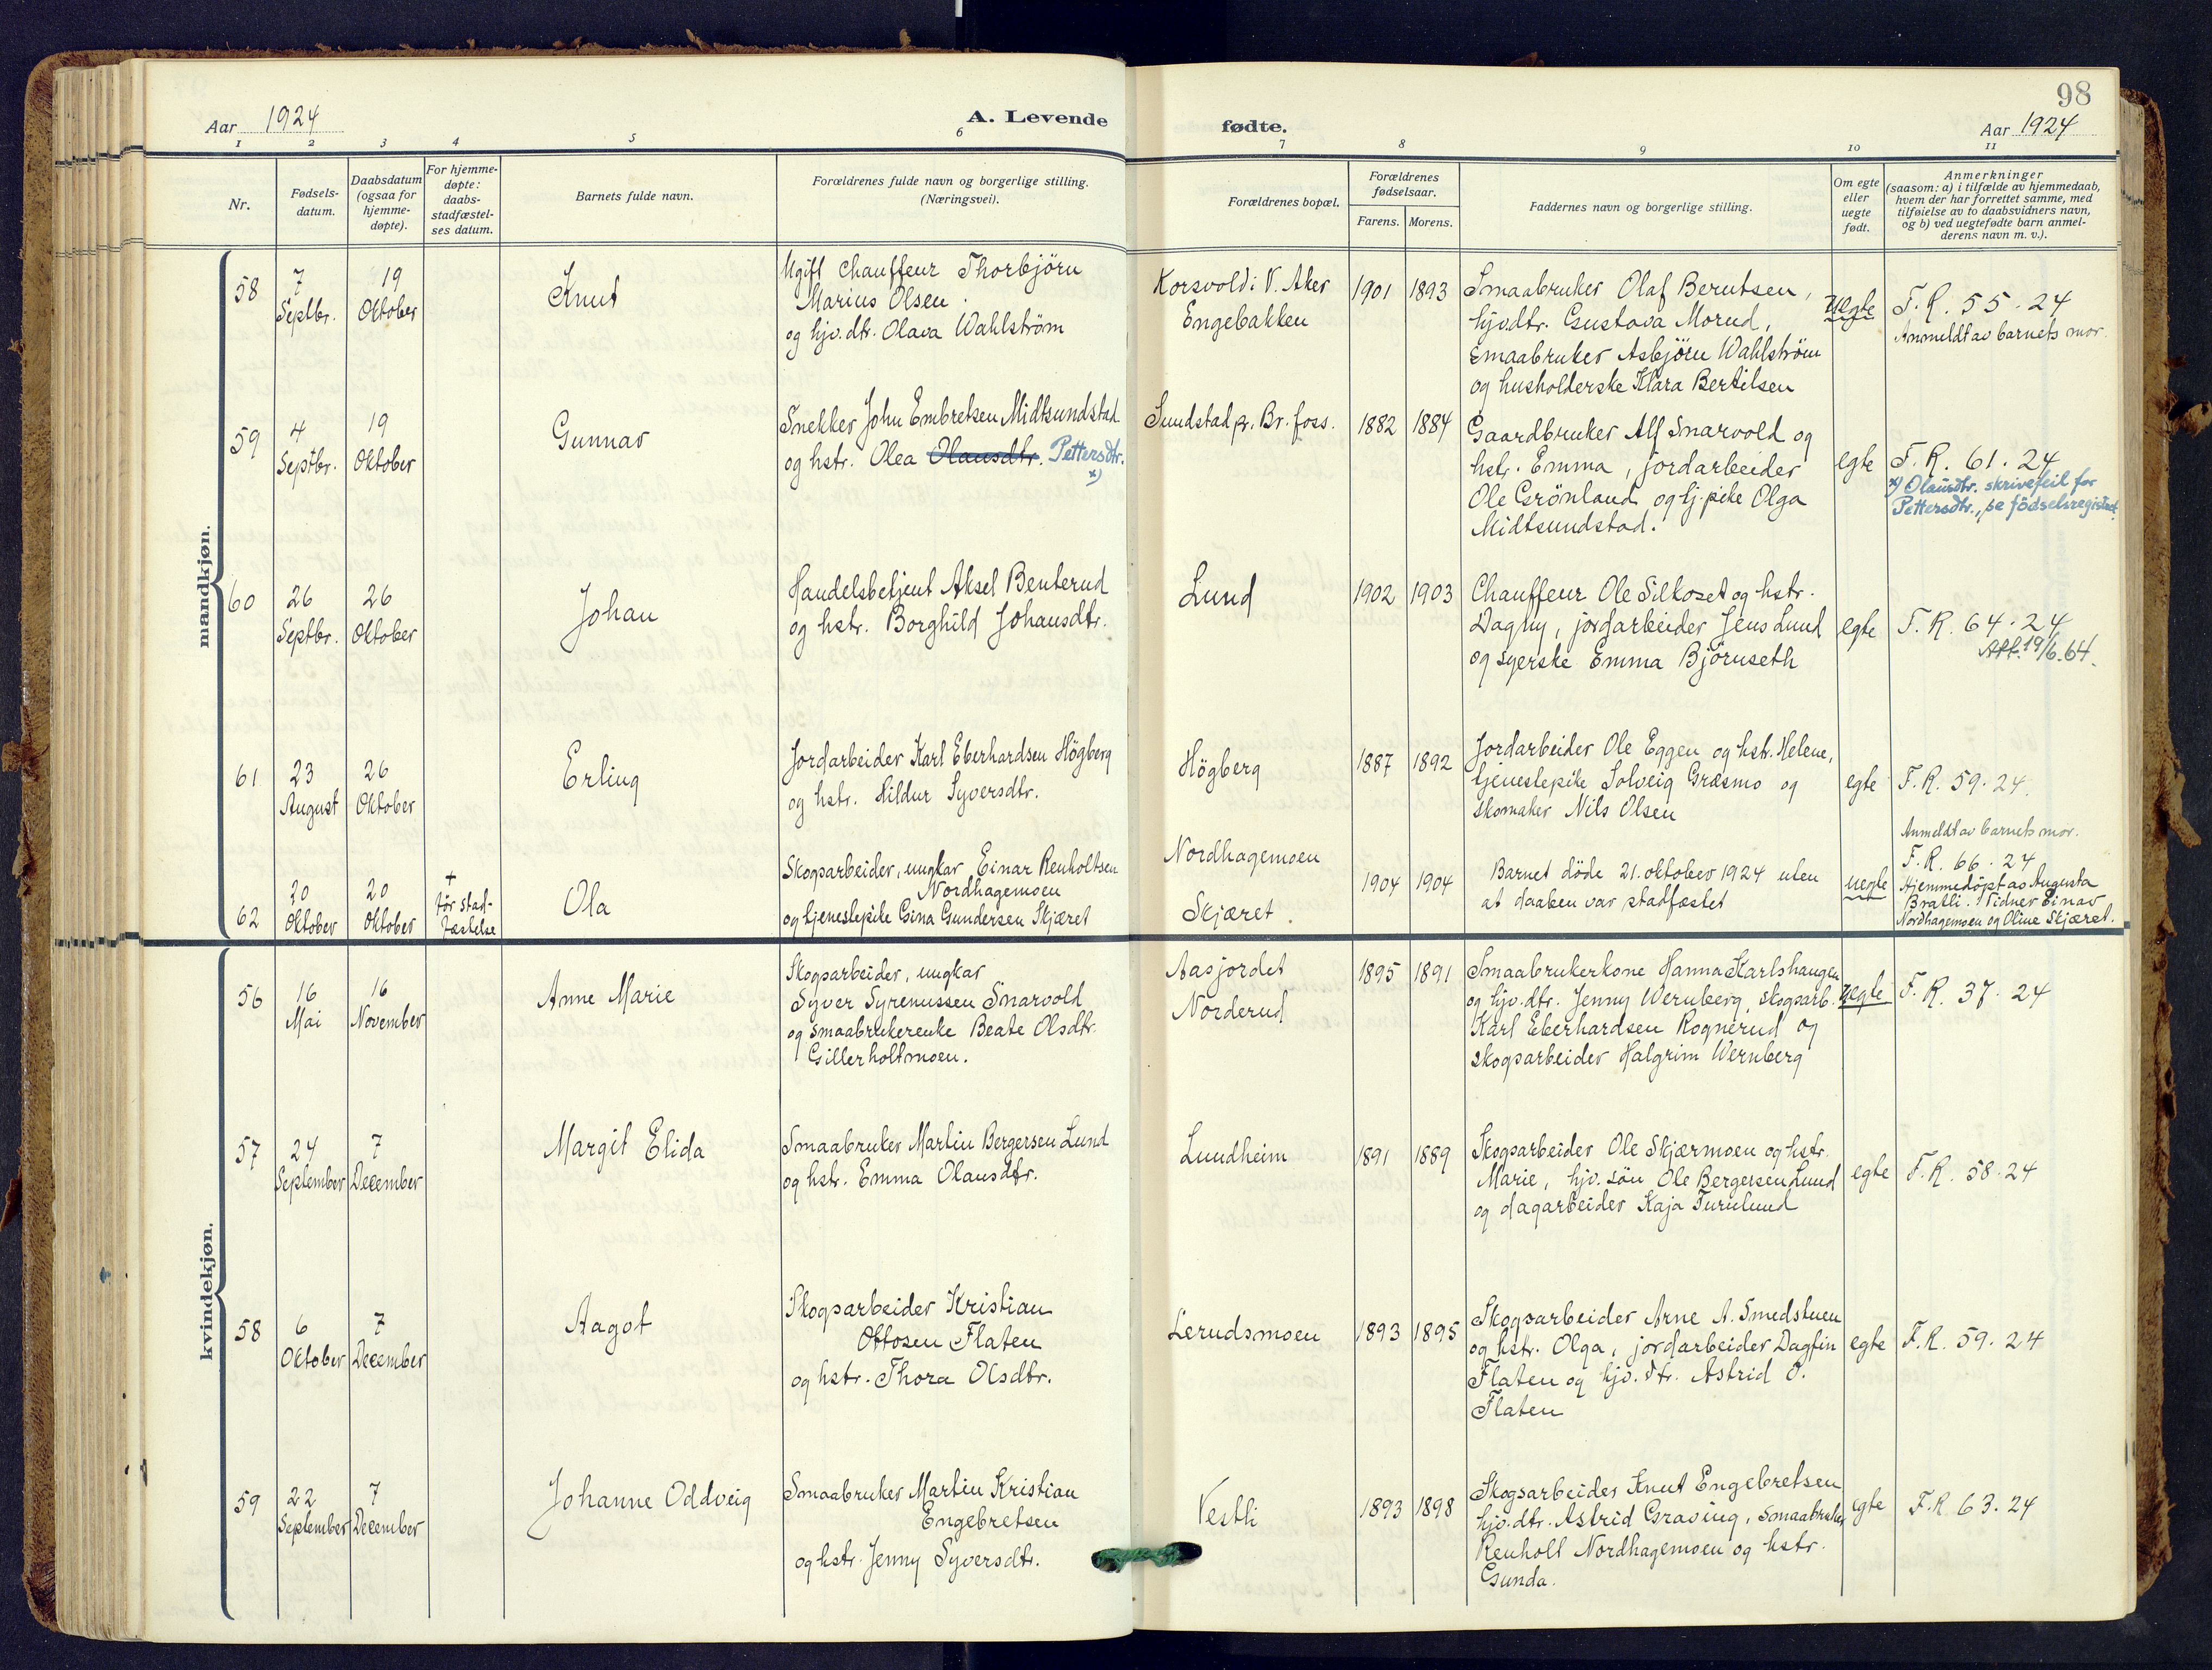 98
Aar 1924
A. Levende
fødte.
Aar 1924
1 2 3 4 5 6 7 8 9 10 11
Nr.
Fødsels-
datum.
Daabsdatum
(ogsaa for
hjemme-
døpte).
For hjemme-
døpte:
daabs-
stadfæstel-
ses datum.
Barnets fulde navn.
Forældrenes fulde navn og borgerlige stilling.
(Næringsvei).
Forældrenes bopæl.
Forældrenes
fødselsaar.
Farens. Morens.
Faddernes navn og borgerlige stilling.
Om egte
eller
uegte
født.
Anmerkninger
(saasom: a) i tilfælde av hjemmedaab,
hvem der har forrettet samme, med
tilføielse av to daabsvidners navn,
og b) ved uegtefødte barn anmel-
derens navn m. v.).
mandkjøn.
58
7
Septbr.
19
Oktober
Knut
Ugift chauffeur Thorbjörn
Marius Olsen
og hjv. dtr. Olava Wahlström
Korsvold i V. Aker
Engebakken
1901 1893
Smaabruker Olaf Berntsen,
hjv.dtr. Gustava Morud,
smaabruker Asbjörn Wahlström
og husholderske Klara Bertilsen
Uegte
F. R. 55. 24
Anmeldt av barnets mor.
59
4
Septbr.
19
Oktober
Gunnar
Snekker John Embretsen Midtsundstad
og hstr. Olea Olausdtr. Pettersdtr.
x)
Sundstad p. Br. foss.
1882 1884
Gaardbruker Alf Snarvold og
hstr. Emma, jordarbeider
Ole Grönland og tj. pike Olga
Midtsundstad.
egte
F. R. 61. 24
x) Olausdtr. skrivefeil for
Pettersdtr., se födselsregistret.
60
26
Septbr.
26
Oktober
Johan
Handelsbetjent Aksel Benterud
og hstr. Borghild Johansdtr.
Lund
1902 1903
Chauffeur Ole Silkoset og hstr.
Dagny, jordarbeider Jens Lund
og syerske Emma Björnseth
egte
F. R. 64. 24
Att. 19/6. 64.
61
23
August
26
Oktober
Erling
Jordarbeider Karl Eberhardsen Högberg
og hstr. Hildur Syversdtr.
Högberg
1887 1892
Jordarbeider Ole Eggen og hstr. Helene,
tjenestepike Solveig Græsmo og
skomaker Nils Olsen
egte
F. R. 59. 24.
62
20
Oktober
20
Oktober
+
för stad-
fæstelse
Ola
Skogsarbeider, ungkar Einar Renholtsen
Nordhagemoen
og tjenestepike Gina Gundersen Skjæret
Nordhagemoen
Skjæret.
1904 1904
Barnet döde 21. oktober 1924 uten
at daaben var stadfæstet
uegte
Anmeldt av barnets mor.
F. R. 66. 24
Hjemmedöpt av Augusta
Bratli. Vidner Einar
Nordhagemoen og Oline Skjæret.
kvindekjøn.
56
16
Mai
16
November
Anne Marie
Skogsarbeider, ungkar
Syver Syrenussen Snarvold
og smaabrukerenke Beate Olsdtr.
Gillerholtmoen.
Aasjordet
Norderud
1895 1891
Smaabrukerkone Hanna Karlshaugen
og hjv. dtr. Jenny Wernberg, skogsarb.
Karl Eberhardsen Rognerud og
skogsarbeider Halgrim Wernberg
Uegte
F. R. 37. 24
57
24
September
7
December
Margit Elida
Smaabruker Martin Bergersen Lund
og hstr. Emma Olausdtr.
Lundheim
1891 1889
Skogsarbeider Ole Skjærmoen og hstr.
Marie, hjv. sön Ole Bergersen Lund
og dagarbeider Kaja Furulund
egte
F. R. 58. 24
58
6
Oktober
7
December
Aagot
Skogsarbeider Kristian
Ottosen Flaten
og hstr. Thora Olsdtr.
Lerudsmoen
1893 1895
Skogsarbeider Arne A. Smedstuen
og hstr. Olga, jordarbeider Dagfin
Flaten og hjv. dtr. Astrid O.
Flaten
egte
F. R. 59. 24
59
22
September
7
December
Johanne Oddveig
Smaabruker Martin Kristian
Engebretsen
og hstr. Jenny Syversdtr.
Vestli
1893 1898
Skogsarbeider Knut Engebretsen
hjv. dtr. Astrid Graving, smaabruker
Renholt Nordhagemoen og hstr.
Gunda.
egte
F. R. 63. 24